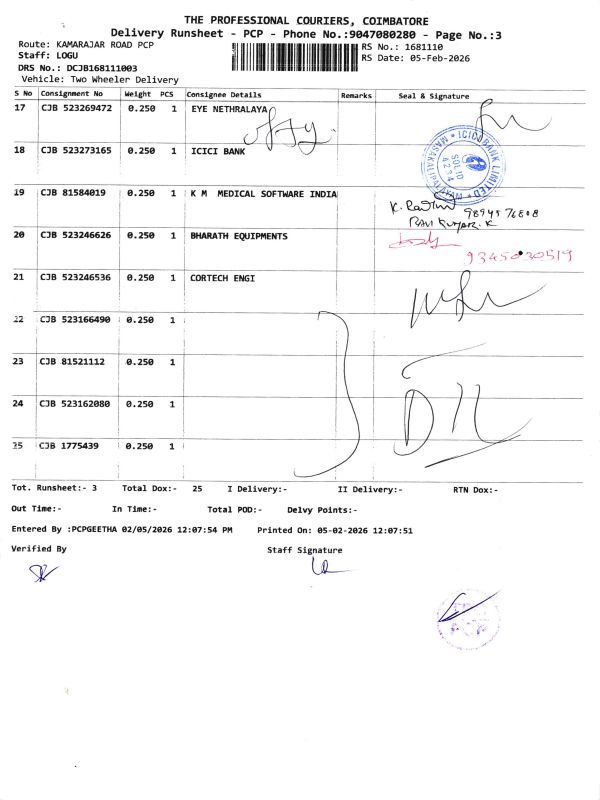 THE PROFESSIONAL COURIERS, COIMBATORE
Delivery Runsheet - PCP - Phone No.:9047080280 - Page No.:3
Route: KAMARAJAR ROAD PCP
RS No.: 1681110
Staff: LOGU
RS Date: 05-Feb-2026
DRS No.: DCJB168111003
Vehicle: Two Wheeler Delivery
S No Consignment No Weight PCS Consignee Details Remarks Seal & Signature
17 CJB 523269472 0.250 1 EYE NETHRALAYA
18 CJB 523273165 0.250 1 ICICI BANK
ICICI BANK LIMITED
SOL ID
4234
19 CJB 81584019 0.250 1 K M MEDICAL SOFTWARE INDIA
9894576808
RAVI KUMAR. K
20 CJB 523246626 0.250 1 BHARATH EQUIPMENTS
9345030519
21 CJB 523246536 0.250 1 CORTECH ENGI
22 CJB 523166490 0.250 1
23 CJB 81521112 0.250 1
24 CJB 523162080 0.250 1
25 CJB 1775439 0.250 1
Tot. Runsheet:- 3 Total Dox:- 25 I Delivery:- II Delivery:- RTN Dox:-
Out Time:- In Time:- Total POD:- Delvy Points:-
Entered By :PCPGEETHA 02/05/2026 12:07:54 PM Printed On: 05-02-2026 12:07:51
Verified By Staff Signature
PCP